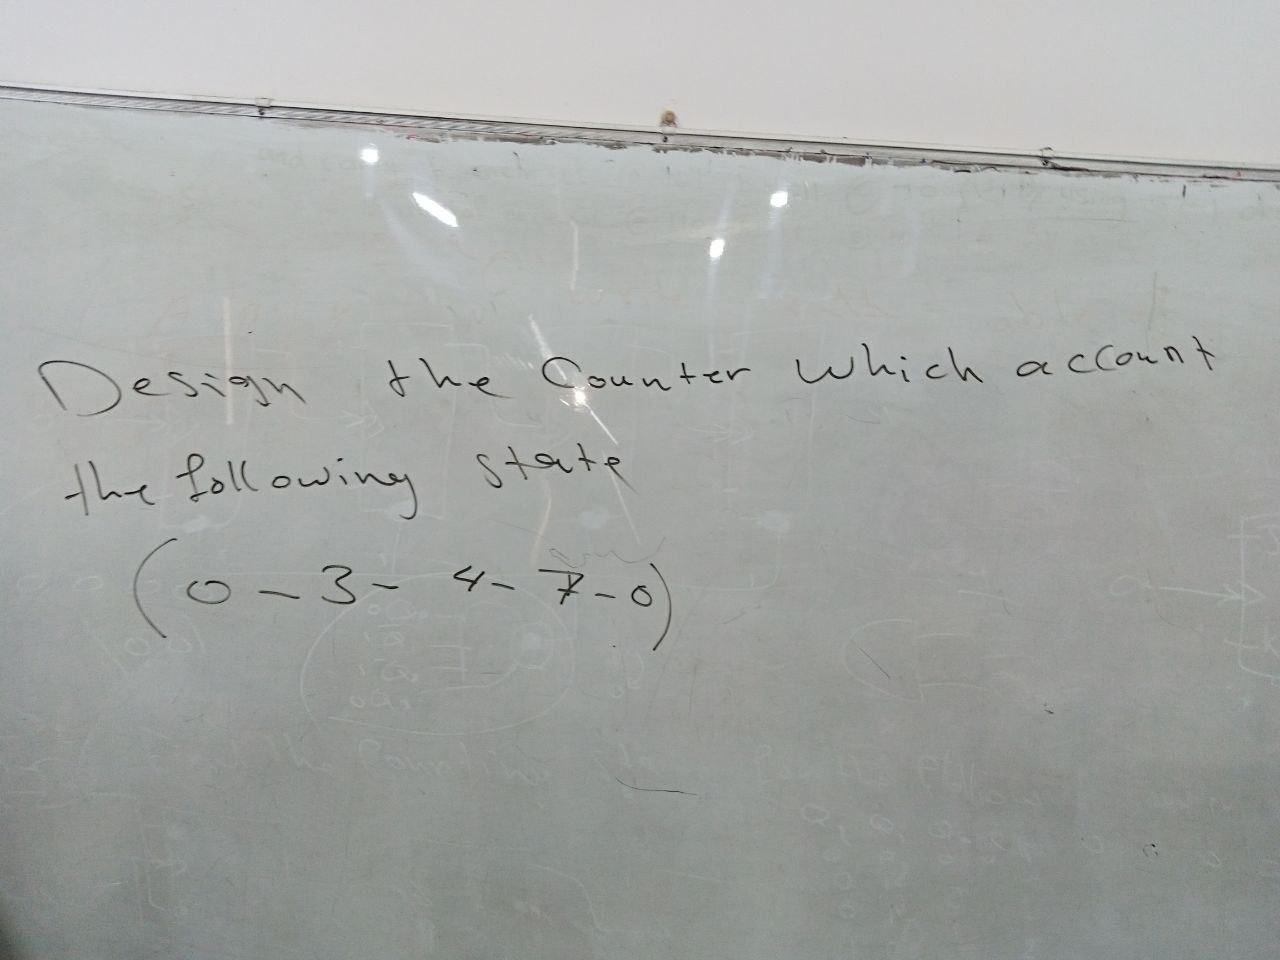 Design the Counter which account
the following state
(0 - 3 - 4 - 7 - 0)